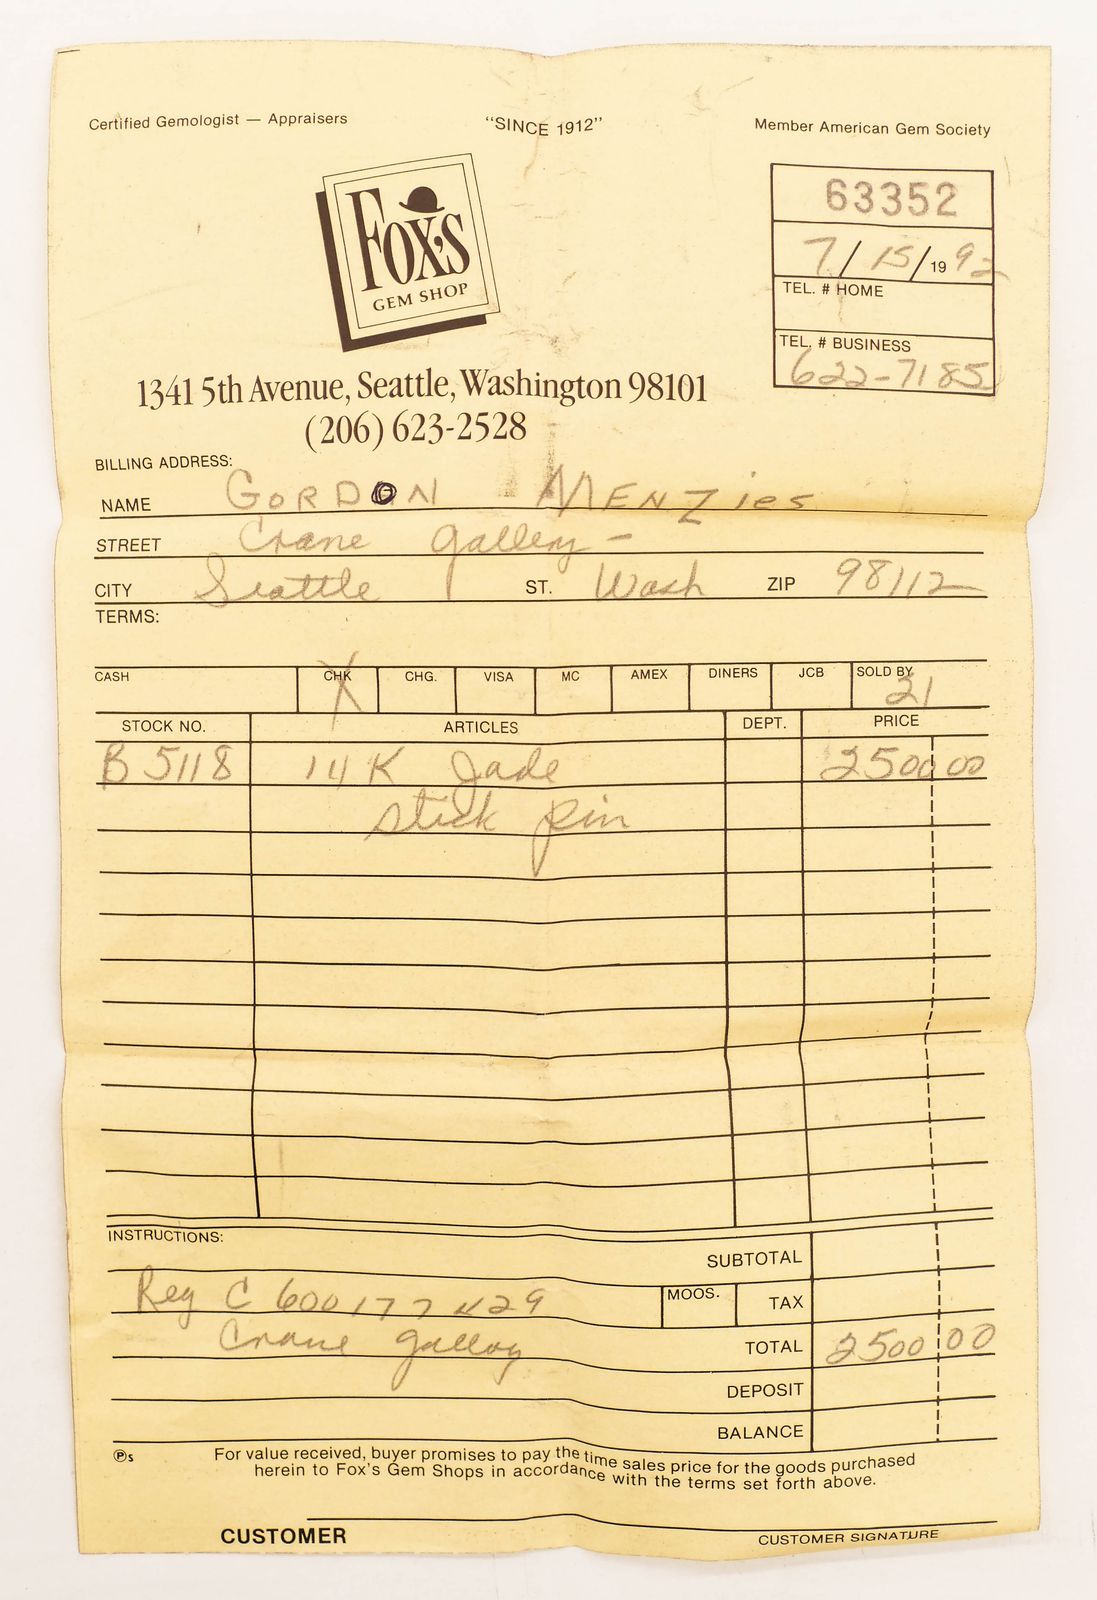 Certified Gemologist — Appraisers
"SINCE 1912"
Member American Gem Society
FOX'S
GEM SHOP
63352
7/15/1992
TEL. # HOME
TEL. # BUSINESS
622-7185
1341 5th Avenue, Seattle, Washington 98101
(206) 623-2528
BILLING ADDRESS:
NAME GORDON MENZies
STREET Crane gallery -
CITY Seattle ST. Wash ZIP 98112
TERMS:
CASH CHK X CHG. VISA MC AMEX DINERS JCB SOLD BY 21
STOCK NO. ARTICLES DEPT. PRICE
B 5118 14 K Jade 2500 00
stick pin
INSTRUCTIONS:
SUBTOTAL
Reg C 600 177 429 MOOS. TAX
Crane gallery TOTAL 2500 00
DEPOSIT
BALANCE
Ⓟs For value received, buyer promises to pay the time sales price for the goods purchased
herein to Fox's Gem Shops in accordance with the terms set forth above.
CUSTOMER CUSTOMER SIGNATURE